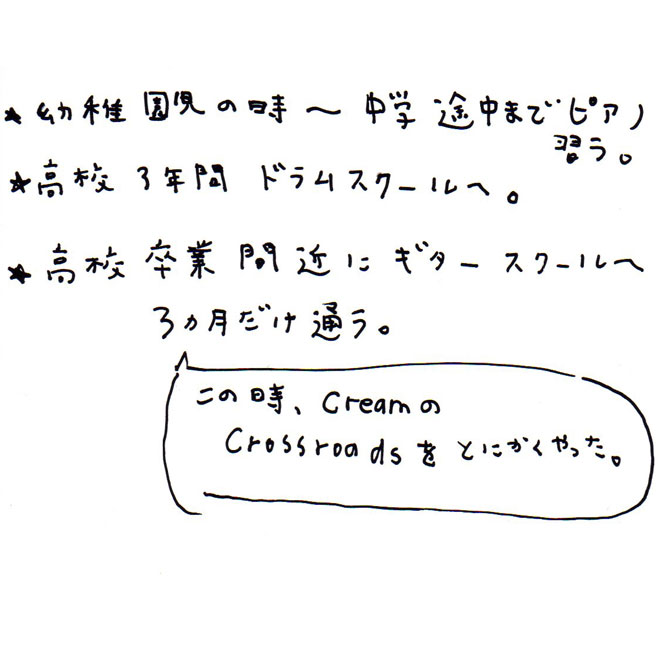 ★幼稚園児の時〜中学途中までピアノ
習う。
★高校3年間ドラムスクールへ。
★高校卒業間近にギタースクールへ
3ヵ月だけ通う。
この時、Creamの
Crossroadsをとにかくやった。